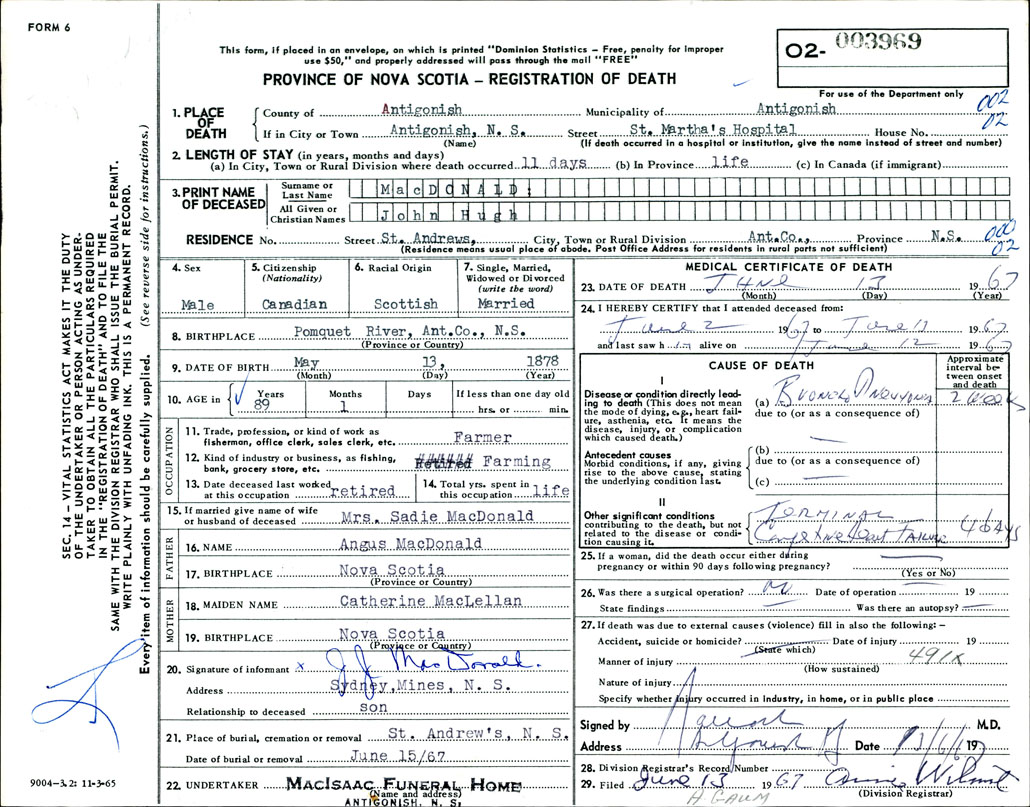 FORM 6
This form, if placed in an envelope, on which is printed "Dominion Statistics – Free, penalty for improper
use $50," and properly addressed will pass through the mail "FREE"
PROVINCE OF NOVA SCOTIA – REGISTRATION OF DEATH
O2- 003969
For use of the Department only
002
02
1. PLACE OF DEATH
County of Antigonish Municipality of Antigonish
If in City or Town Antigonish, N. S. Street St. Martha's Hospital House No.
(Name) (If death occurred in a hospital or institution, give the name instead of street and number)
2. LENGTH OF STAY (in years, months and days)
(a) In City, Town or Rural Division where death occurred 11 days (b) In Province life (c) In Canada (if immigrant)
3. PRINT NAME OF DECEASED
Surname or Last Name MacDONALD,
All Given or Christian Names John Hugh
RESIDENCE No. Street St. Andrews, City, Town or Rural Division Ant.Co., Province N.S.
(Residence means usual place of abode. Post Office Address for residents in rural parts not sufficient)
000
02
4. Sex
Male
5. Citizenship
(Nationality)
Canadian
6. Racial Origin
Scottish
7. Single, Married,
Widowed or Divorced
(write the word)
Married
8. BIRTHPLACE Pomquet River, Ant.Co., N.S.
(Province or Country)
9. DATE OF BIRTH May 13, 1878
(Month) (Day) (Year)
10. AGE in
Years
89
Months
1
Days
If less than one day old
hrs. or min.
OCCUPATION
11. Trade, profession, or kind of work as
fisherman, office clerk, sales clerk, etc. Farmer
12. Kind of industry or business, as fishing,
bank, grocery store, etc. Farming
13. Date deceased last worked
at this occupation retired
14. Total yrs. spent in
this occupation life
15. If married give name of wife
or husband of deceased Mrs. Sadie MacDonald
FATHER
16. NAME Angus MacDonald
17. BIRTHPLACE Nova Scotia
(Province or Country)
MOTHER
18. MAIDEN NAME Catherine MacLellan
19. BIRTHPLACE Nova Scotia
(Province or Country)
20. Signature of informant x J.J. MacDonald.
Address Sydney,Mines, N. S.
Relationship to deceased son
21. Place of burial, cremation or removal St. Andrew's, N. S.
Date of burial or removal June 15/67
22. UNDERTAKER MacIsaac Funeral Home
(Name and address)
ANTIGONISH, N. S.
MEDICAL CERTIFICATE OF DEATH
23. DATE OF DEATH June 13 1967
(Month) (Day) (Year)
24. I HEREBY CERTIFY that I attended deceased from:
June 2 1967 to June 13 1967
and last saw him alive on June 12 1967
CAUSE OF DEATH
Approximate
interval be-
tween onset
and death
I
Disease or condition directly lead-
ing to death (This does not mean
the mode of dying, e.g., heart fail-
ure, asthenia, etc. It means the
disease, injury, or complication
which caused death.)
(a) Broncho Pneumonia 2 weeks
due to (or as a consequence of)
Antecedent causes
Morbid conditions, if any, giving
rise to the above cause, stating
the underlying condition last.
(b)
due to (or as a consequence of)
(c)
II
Other significant conditions
contributing to the death, but not
related to the disease or condi-
tion causing it.
Terminal
Congestive Heart Failure
25. If a woman, did the death occur either during
pregnancy or within 90 days following pregnancy?
(Yes or No)
26. Was there a surgical operation? no Date of operation 19
State findings Was there an autopsy?
27. If death was due to external causes (violence) fill in also the following: –
Accident, suicide or homicide? Date of injury 19
(State which)
Manner of injury 491X
(How sustained)
Nature of injury
Specify whether injury occurred in industry, in home, or in public place
Signed by M.D.
Address Date 19
28. Division Registrar's Record Number
29. Filed June 13 1967
(Division Registrar)
SEC. 14 – VITAL STATISTICS ACT MAKES IT THE DUTY
OF THE UNDERTAKER OR PERSON ACTING AS UNDER-
TAKER TO OBTAIN ALL THE PARTICULARS REQUIRED
IN THE "REGISTRATION OF DEATH" AND TO FILE THE
SAME WITH THE DIVISION REGISTRAR WHO SHALL ISSUE THE BURIAL PERMIT.
WRITE PLAINLY WITH UNFADING INK. THIS IS A PERMANENT RECORD.
Every item of information should be carefully supplied. (See reverse side for instructions.)
9004–3.2: 11-3-65